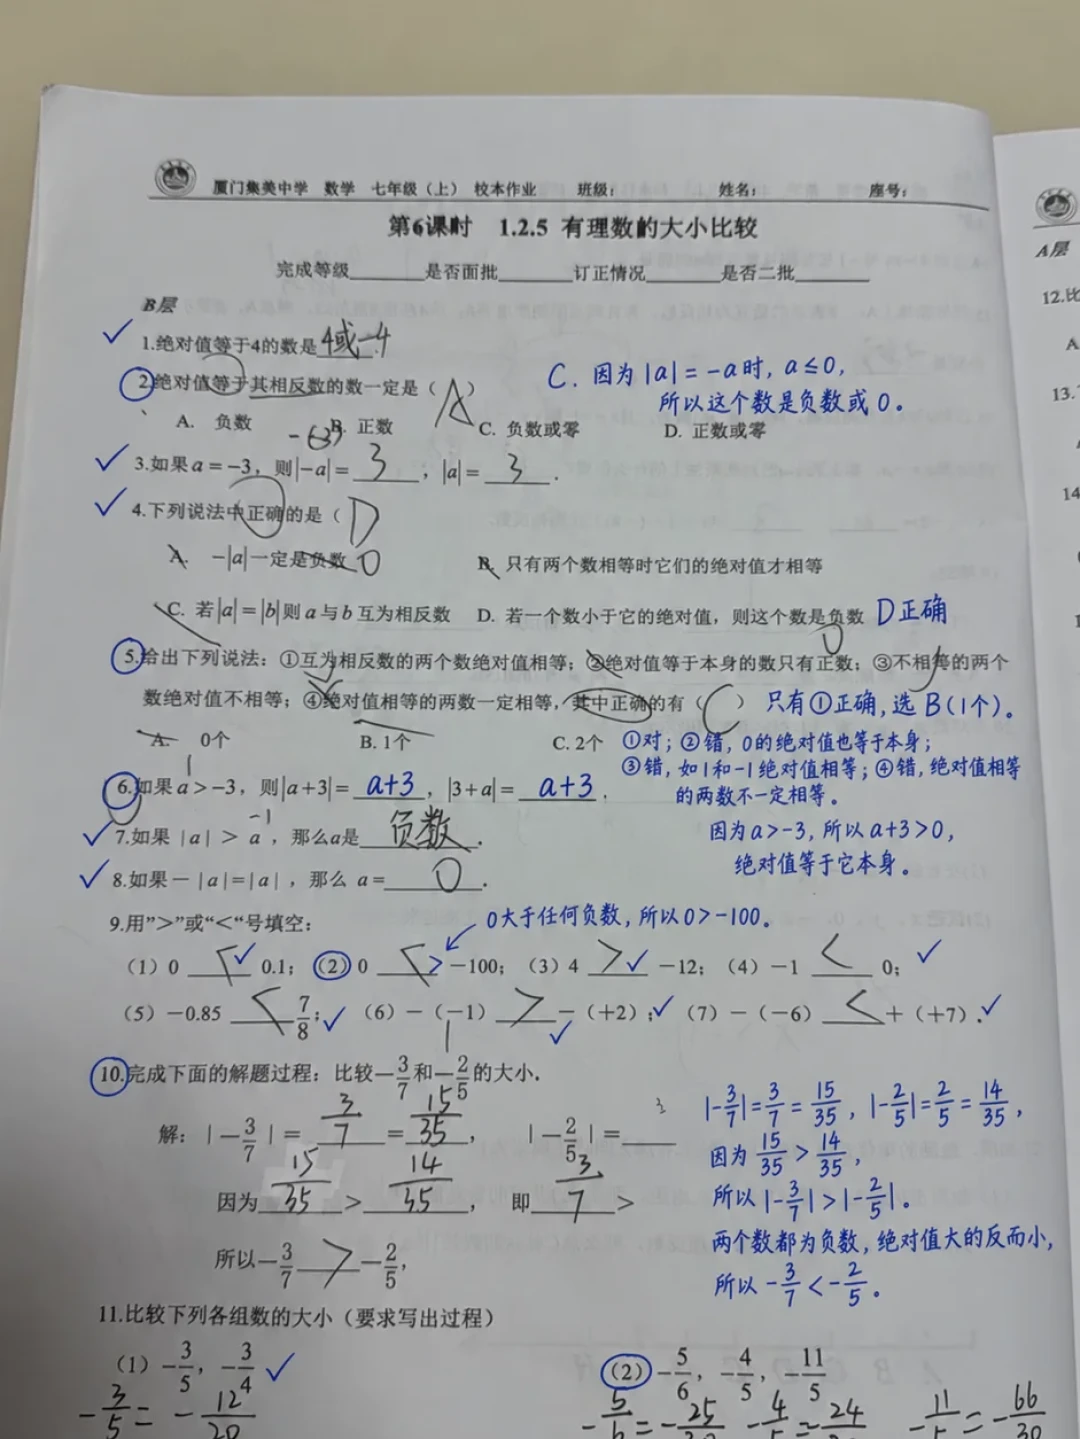 厦门集美中学 数学 七年级（上） 校本作业 班级： 姓名： 座号：
第6课时 1.2.5 有理数的大小比较
完成等级______是否面批______订正情况______是否二批______
B层
A层
✓ 1.绝对值等于4的数是 4或-4 .
12.比
2.绝对值等于其相反数的数一定是（ A ）
C. 因为|a|=-a时, a≤0,
所以这个数是负数或0。
A. 负数 B. 正数 C. 负数或零 D. 正数或零
13.
✓ 3.如果a=-3，则|-a|= 3 ，|a|= 3 .
14
✓ 4.下列说法中正确的是（ D
A. -|a|一定是负数 0 B. 只有两个数相等时它们的绝对值才相等
C. 若|a|=|b|则a与b互为相反数 D. 若一个数小于它的绝对值，则这个数是负数 D正确
5.给出下列说法：①互为相反数的两个数绝对值相等；②绝对值等于本身的数只有正数；③不相等的两个
数绝对值不相等；④绝对值相等的两数一定相等，其中正确的有（ C ） 只有①正确, 选B(1个)。
A. 0个 B. 1个 C. 2个
①对; ②错, 0的绝对值也等于本身;
③错, 如1和-1绝对值相等; ④错, 绝对值相等
的两数不一定相等。
6.如果a>-3，则|a+3|= a+3 ，|3+a|= a+3 .
因为a>-3, 所以a+3>0,
绝对值等于它本身。
✓ 7.如果 |a| > a ，那么a是 负数 .
✓ 8.如果－|a|=|a| ，那么 a= 0 .
9.用”>”或“<“号填空：
0大于任何负数, 所以0>-100。
（1）0 < ✓ 0.1；（2）0 < > -100；（3）4 > ✓ -12；（4）-1 < 0； ✓
（5）-0.85 < 7/8；✓（6）-（-1） > -（+2）；✓（7）-（-6） < +（+7）. ✓
10.完成下面的解题过程：比较-3/7和-2/5的大小.
解：|-3/7|= 3/7 = 15/35 ， |-2/5|=____
因为 15/35 > 14/35 ， 即 3/7 >
所以-3/7 > -2/5，
|-3/7|=3/7=15/35, |-2/5|=2/5=14/35,
因为 15/35>14/35,
所以|-3/7|>|-2/5|。
两个数都为负数, 绝对值大的反而小,
所以-3/7<-2/5。
11.比较下列各组数的大小（要求写出过程）
（1）-3/5，-3/4 ✓ （2）-5/6，-4/5，-11/5
-3/5=-12/20 -5/6=-25/30 -4/5=-24/30 -11/5=-66/30